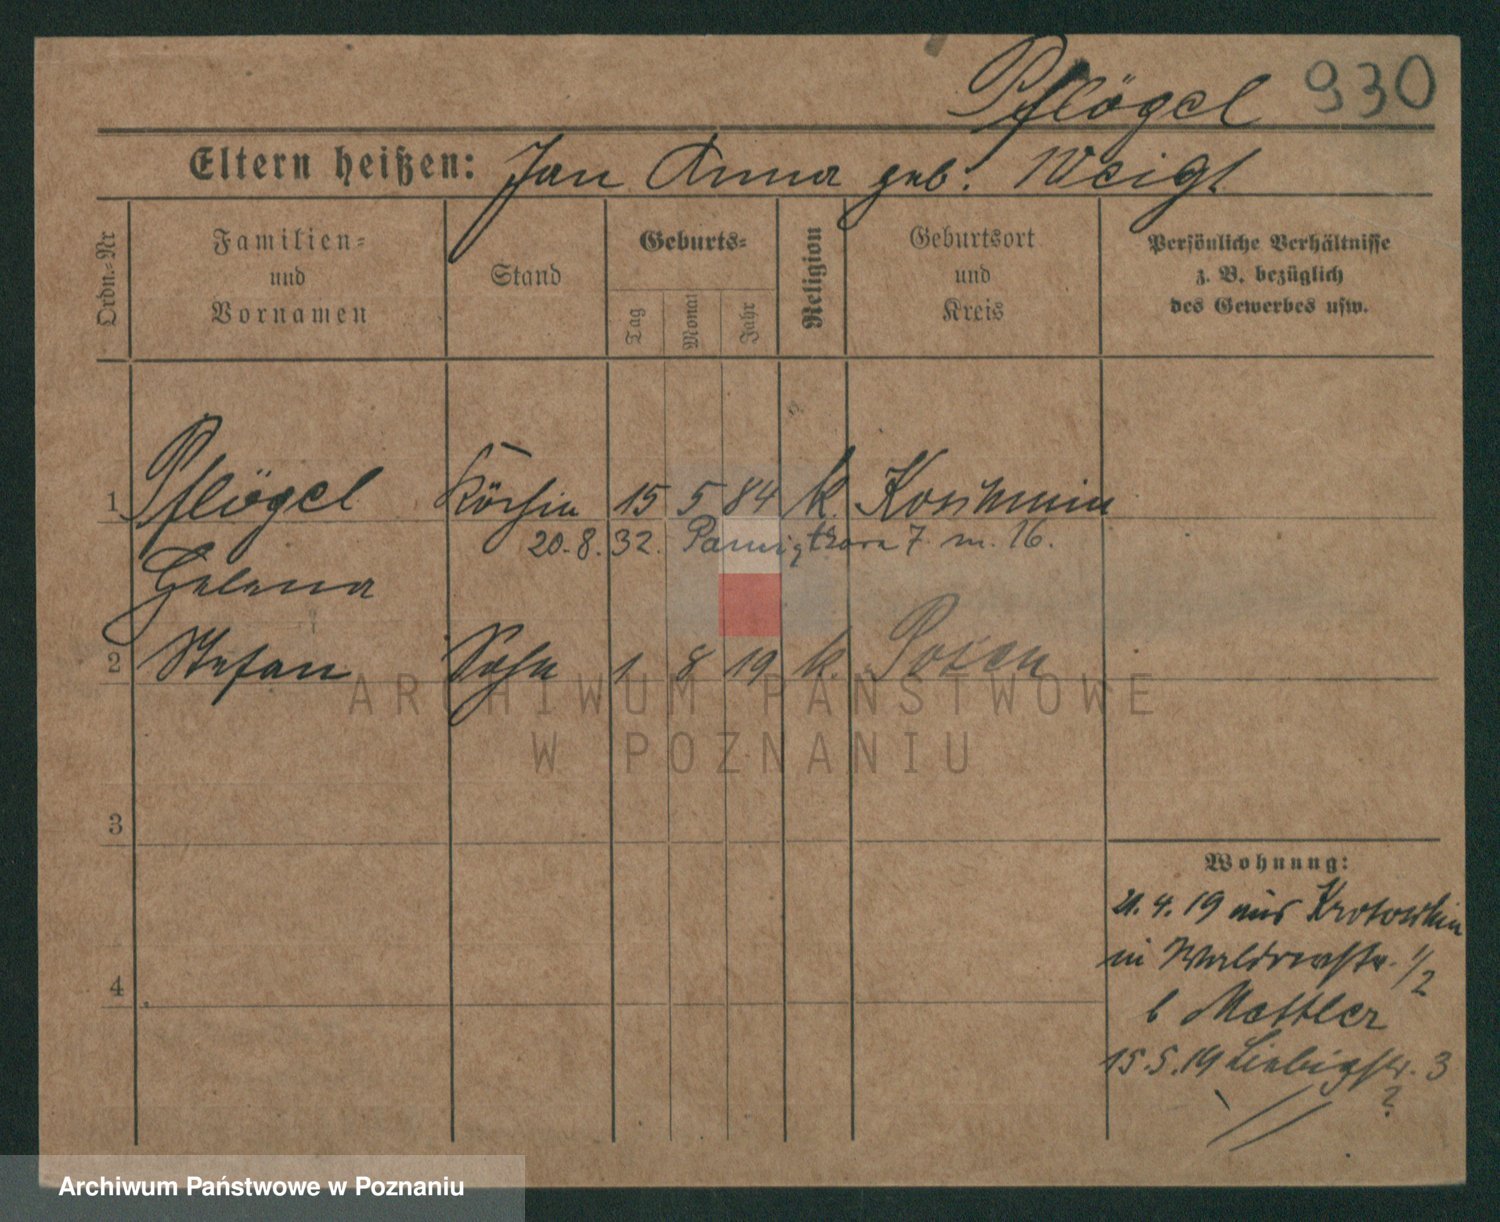 Pflögel 930
Eltern heißen: Jan Anna geb. Weigt
Ordn.-Nr
Familien-
und
Vornamen
Stand
Geburts-
Tag
Monat
Jahr
Religion
Geburtsort
und
Kreis
Persönliche Verhältnisse
z. B. bezüglich
des Gewerbes usw.
1 Pflögel Köchin 15 5 84 k. Koschmin
20.8.32. 7 m. 16.
Helena
2 Stefan Sohn 1 8 19 k. Posen
ARCHIWUM PAŃSTWOWE
W POZNANIU
3
Wohnung:
21.4.19 aus Krotoschin
in 1/2
b Mattler
4
15.5.19 Liebigstr. 3
?
Archiwum Państwowe w Poznaniu